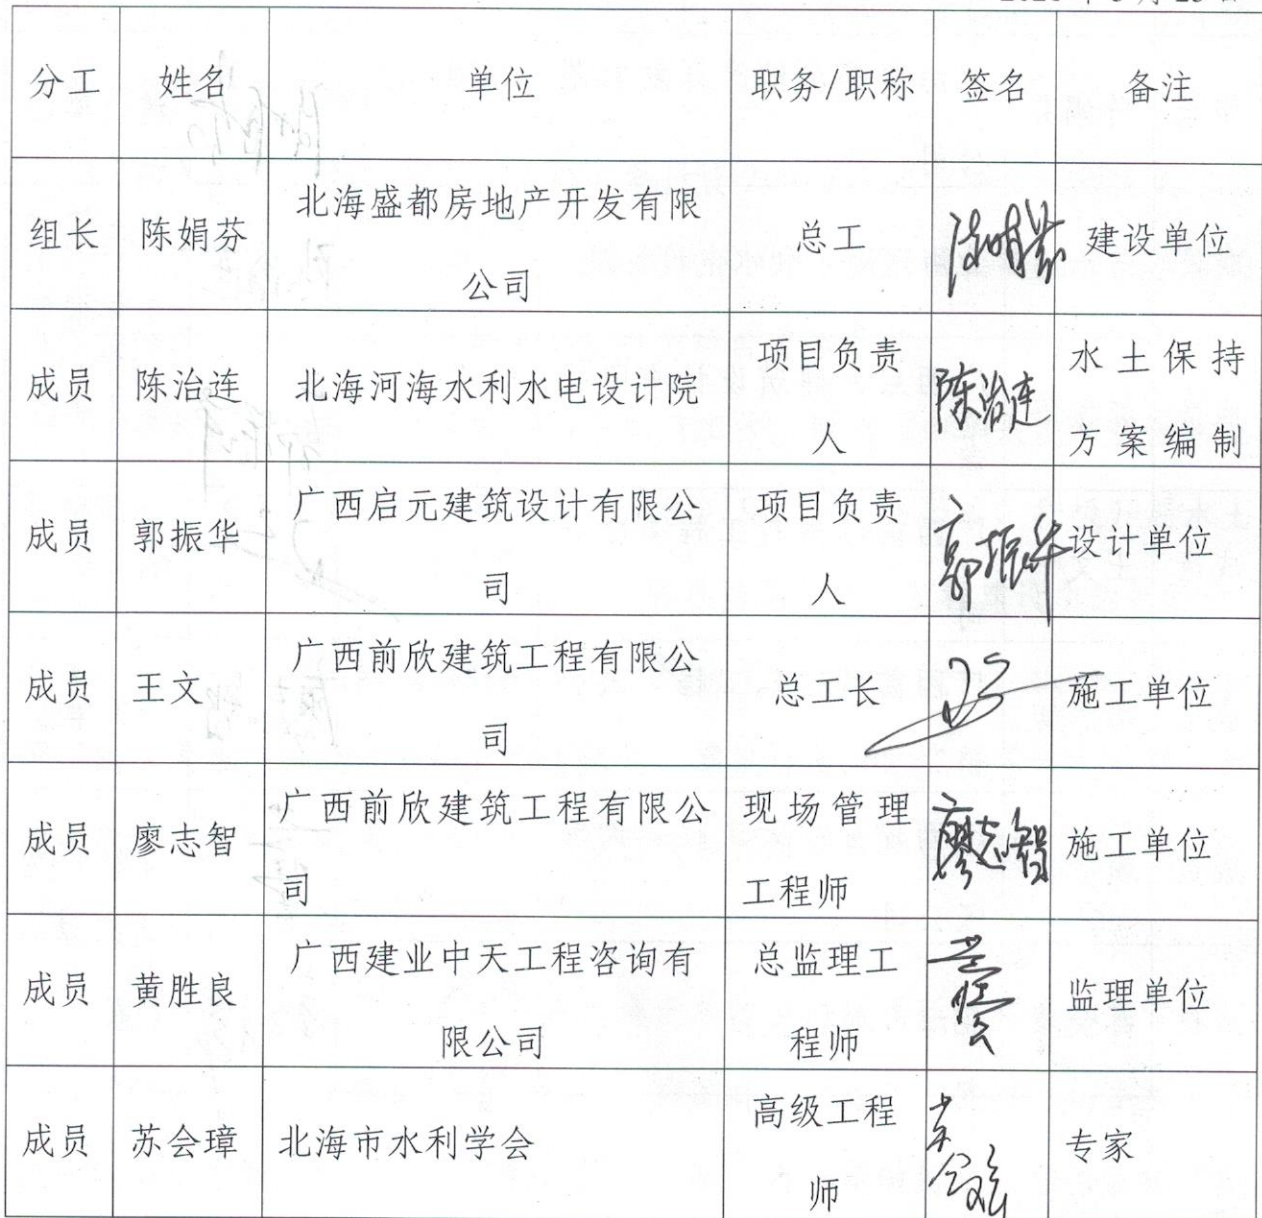 分工 姓名 单位 职务/职称 签名 备注
组长 陈娟芬 北海盛都房地产开发有限 总工 陈娟芬 建设单位
公司
成员 陈治连 北海河海水利水电设计院 项目负责 陈治连 水土保持
人 方案编制
成员 郭振华 广西启元建筑设计有限公 项目负责 郭振华 设计单位
司 人
成员 王文 广西前欣建筑工程有限公 总工长 施工单位
司
成员 廖志智 广西前欣建筑工程有限公 现场管理 廖志智 施工单位
司 工程师
成员 黄胜良 广西建业中天工程咨询有 总监理工 监理单位
限公司 程师
成员 苏会璋 北海市水利学会 高级工程 专家
师